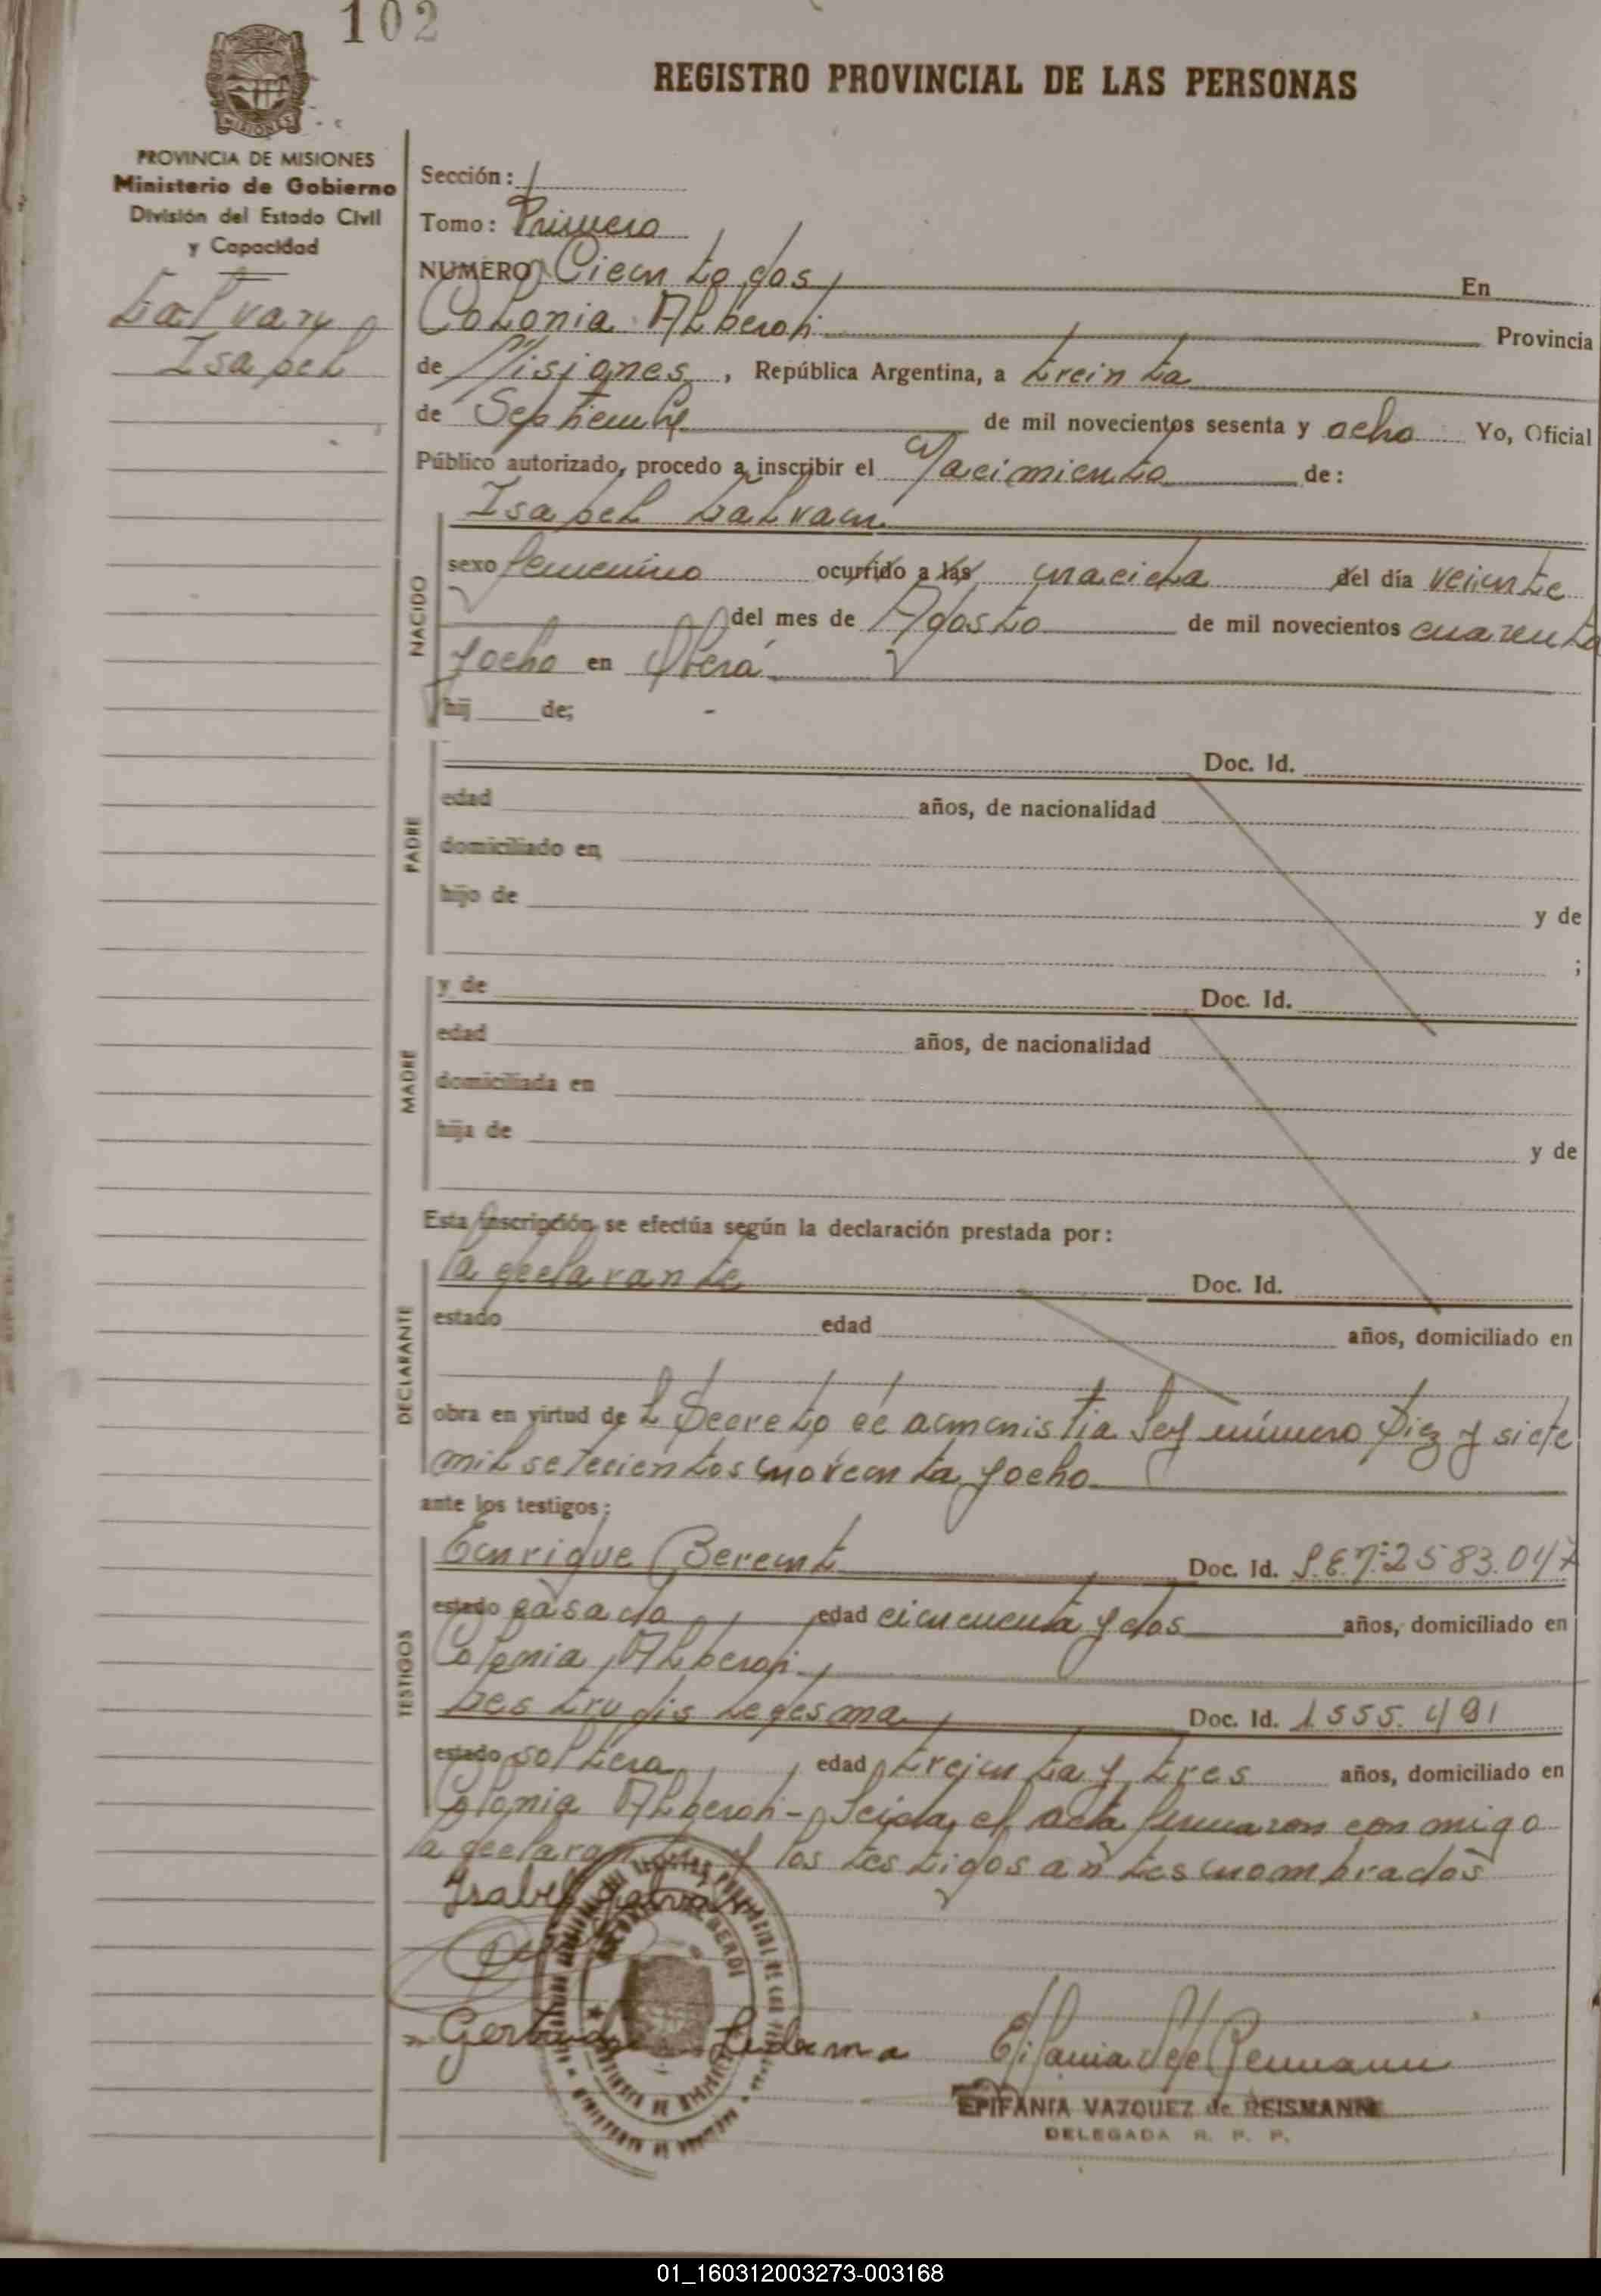 102
REGISTRO PROVINCIAL DE LAS PERSONAS
MISIONES
PROVINCIA DE MISIONES
Ministerio de Gobierno
División del Estado Civil
y Capacidad
Galvan
Isabel
Sección: 1
Tomo: Primero
NUMERO Ciento dos En
Colonia Alberdi Provincia
de Misiones, República Argentina, a treinta
de Septiembre de mil novecientos sesenta y ocho Yo, Oficial
Público autorizado, procedo a inscribir el Nacimiento de:
NACIDO
Isabel Galvan
sexo femenino ocurrido a las nacida del día veinte
del mes de Agosto de mil novecientos cuarenta
y ocho en Oberá
hij de;
PADRE
Doc. Id.
edad años, de nacionalidad
domiciliado en
hijo de y de
;
MADRE
y de Doc. Id.
edad años, de nacionalidad
domiciliada en
hija de y de
Esta inscripción se efectúa según la declaración prestada por:
DECLARANTE
la declarante Doc. Id.
estado edad años, domiciliado en
obra en virtud de l Decreto de amnistia ley número Diez y siete
mil setecientos noventa y ocho
ante los testigos:
TESTIGOS
Enrique Berent Doc. Id. 2583.047
estado casado edad cincuenta y dos años, domiciliado en
Colonia Alberdi
Gestrudis Ledesma Doc. Id. 1.555.491
estado soltera edad treinta y tres años, domiciliado en
Colonia Alberdi - Leida el acta firmaron con migo
la declarante y los testigos antes nombrados
Isabel Galvan
Gertrudis Ledesma
EPIFANIA VAZQUEZ de REISMANN
DELEGADA R. P. P.
01_160312003273-003168